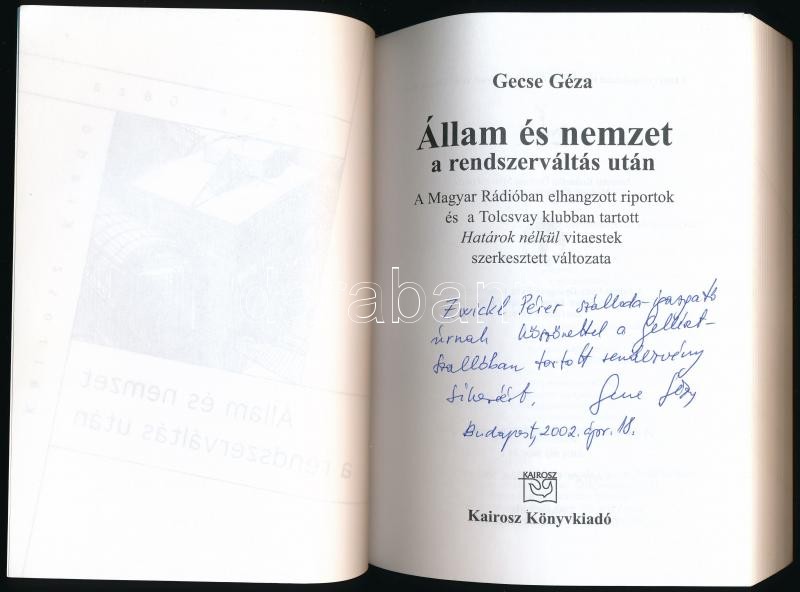 Gecse Géza
Állam és nemzet
a rendszerváltás után
A Magyar Rádióban elhangzott riportok
és a Tolcsvay klubban tartott
Határok nélkül vitaestek
szerkesztett változata
Zwickl Péter szálloda-igazgató
úrnak köszönettel a Gellért-
szállóban tartott rendezvény
sikeréért.
Budapest, 2002. ápr. 18.
KAIROSZ
Kairosz Könyvkiadó
Állam és nemzet
a rendszerváltás után